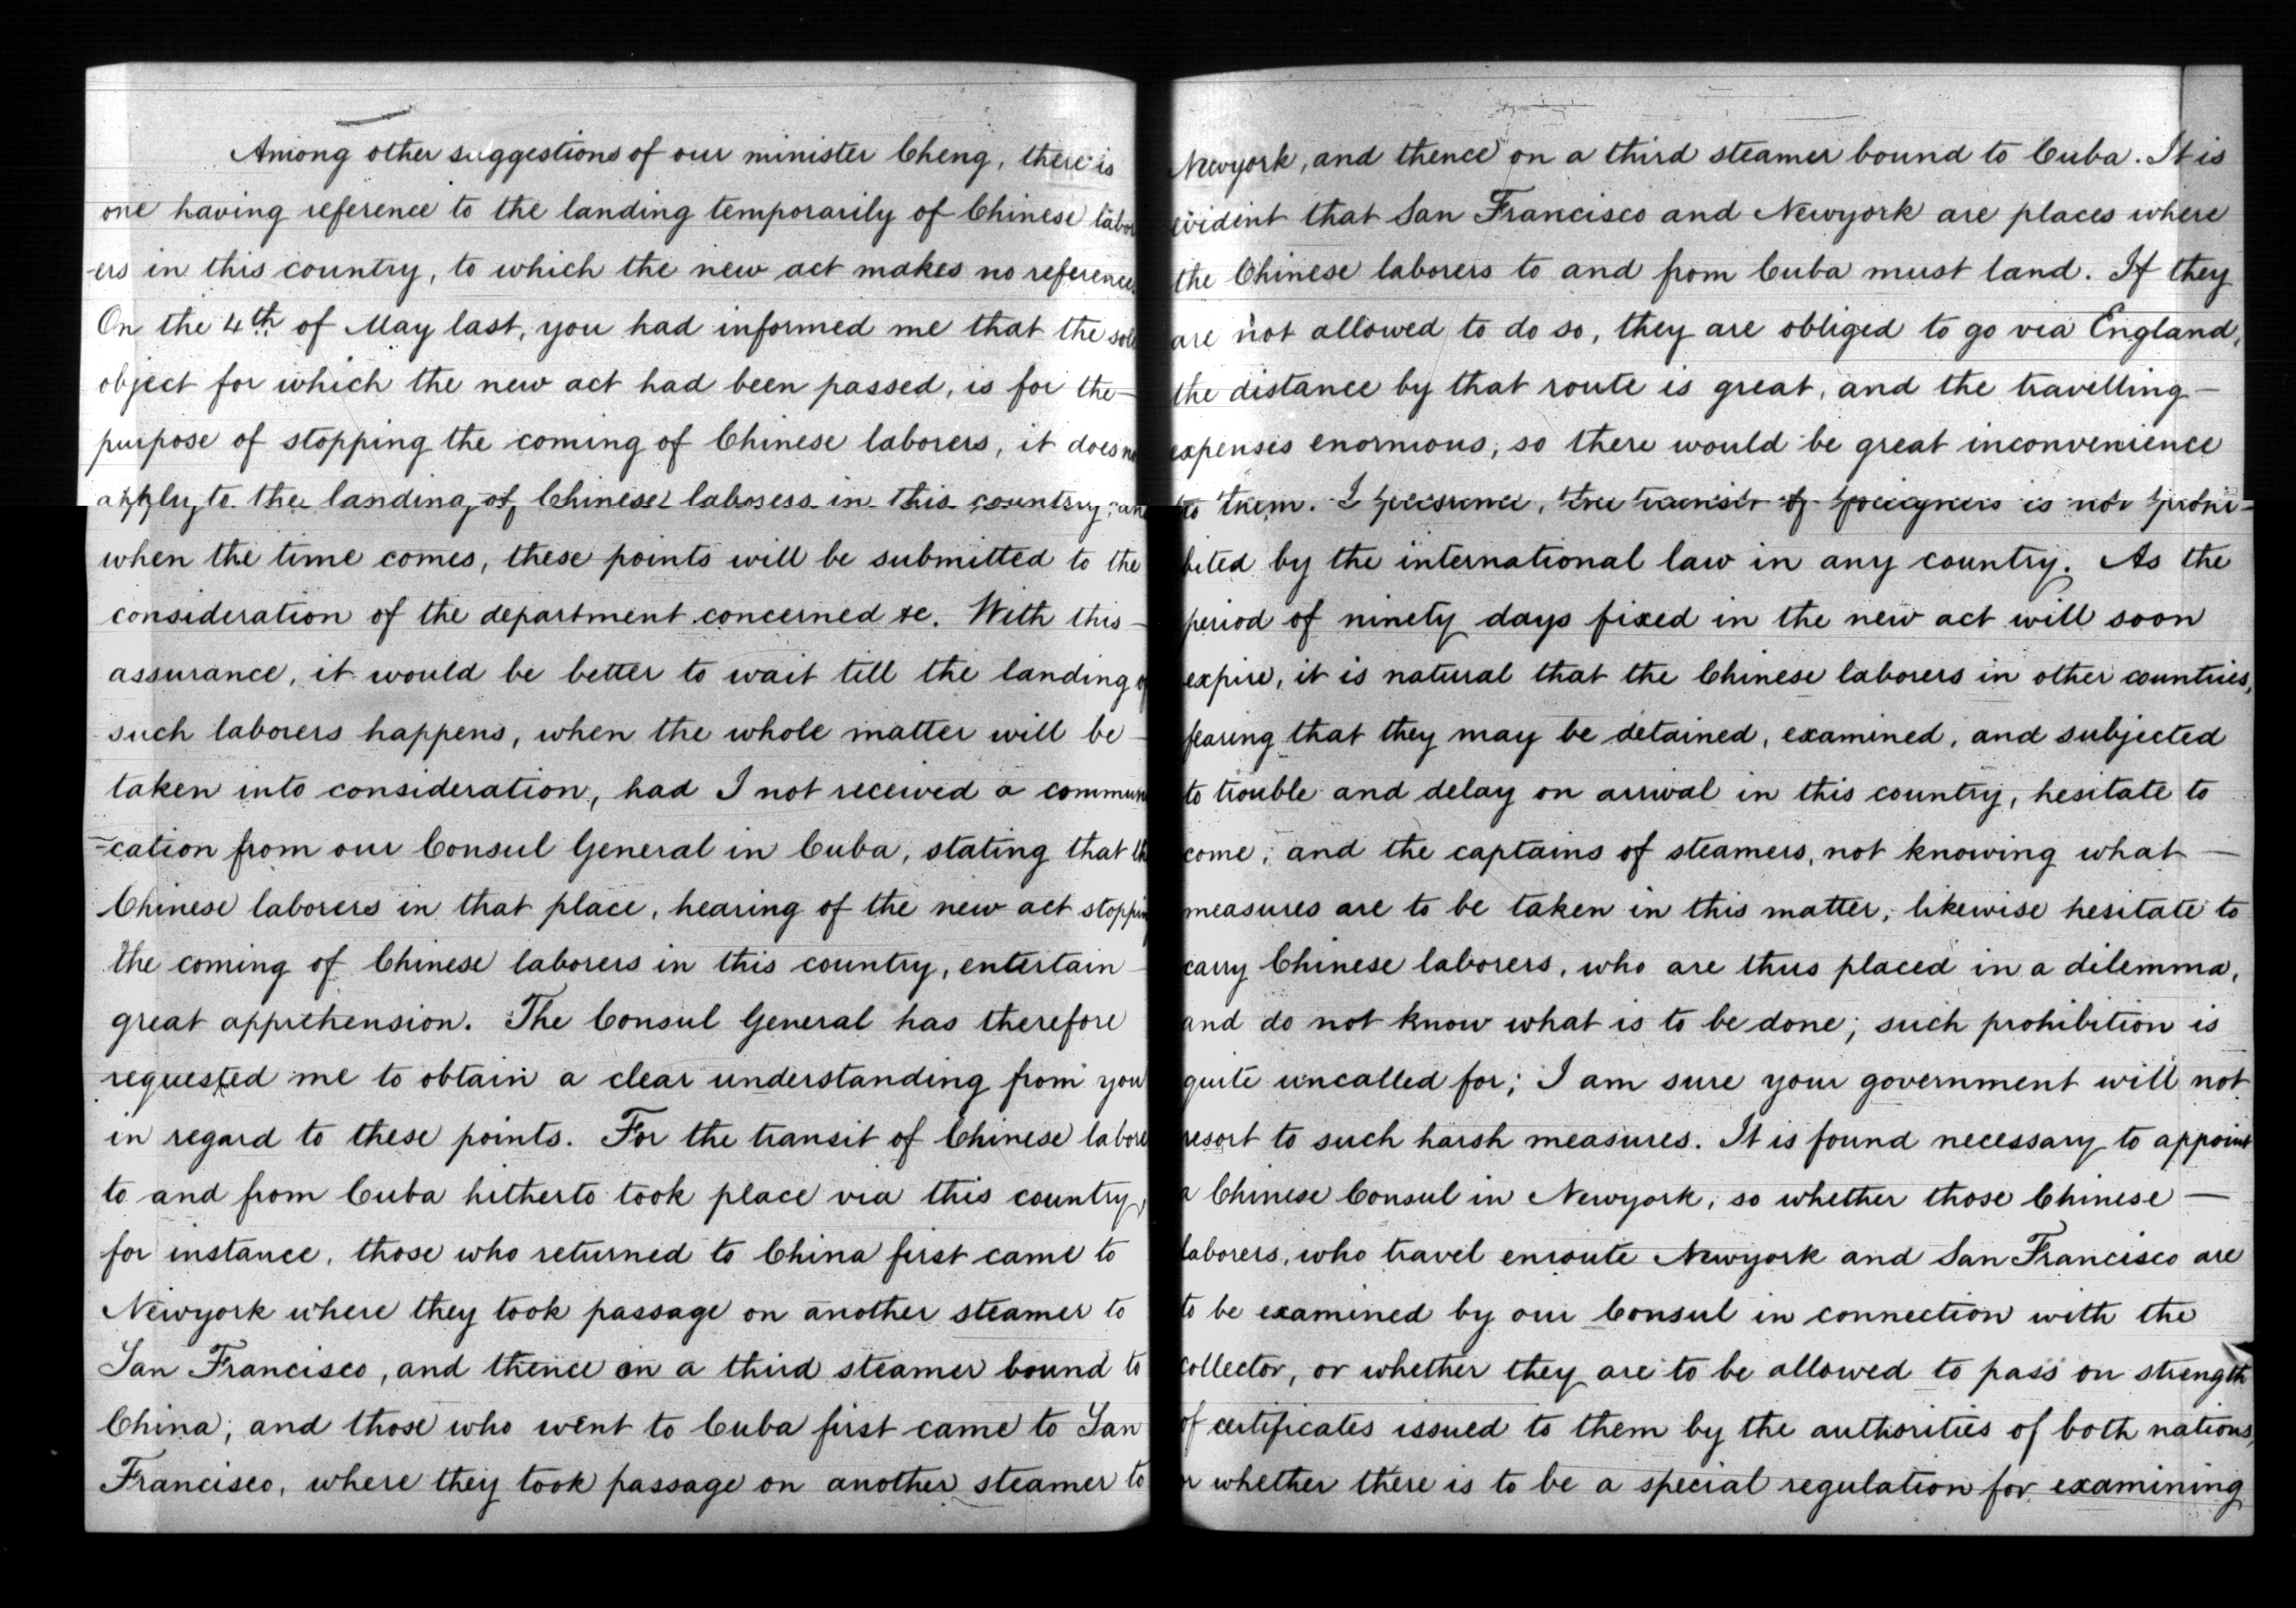 Among other suggestions of our minister Cheng, there is
one having reference to the landing temporarily of Chinese labor
-ers in this country, to which the new act makes no reference
On the 4th of May last, you had informed me that the sole
object for which the new act had been passed, is for the—
purpose of stopping the coming of Chinese laborers, it does not
apply to the landing of Chinese laborers in this country; and
when the time comes, these points will be submitted to the
consideration of the department concerned &c. With this—
assurance, it would be better to wait till the landing of
such laborers happens, when the whole matter will be—
taken into consideration, had I not received a communi
=cation from our Consul General in Cuba, stating that the
Chinese laborers in that place, hearing of the new act stopping
the coming of Chinese laborers in this country, entertain—
great apprehension. The Consul General has therefore
requested me to obtain a clear understanding from you
in regard to these points. For the transit of Chinese labore
to and from Cuba hitherto took place via this country,
for instance, those who returned to China first came to
Newyork where they took passage on another steamer to
San Francisco, and thence on a third steamer bound to
China; and those who went to Cuba first came to San
Francisco, where they took passage on another steamer to
Newyork, and thence on a third steamer bound to Cuba. It is
evident that San Francisco and Newyork are places where
the Chinese laborers to and from Cuba must land. If they
are not allowed to do so, they are obliged to go via England,
the distance by that route is great, and the travelling—
expenses enormous, so there would be great inconvenience
to them. I presume, the transit of foreigners is not prohi-
bited by the international law in any country. As the
period of ninety days fixed in the new act will soon
expire, it is natural that the Chinese laborers in other countries,
fearing that they may be detained, examined, and subjected
to trouble and delay on arrival in this country, hesitate to
come; and the captains of steamers, not knowing what—
measures are to be taken in this matter, likewise hesitate to
carry Chinese laborers, who are thus placed in a dilemma,
and do not know what is to be done; such prohibition is
quite uncalled for; I am sure your government will not
resort to such harsh measures. It is found necessary to appoint
a Chinese Consul in Newyork, so whether those Chinese—
laborers, who travel enroute Newyork and San Francisco are
to be examined by our Consul in connection with the
collector, or whether they are to be allowed to pass on strength
of certificates issued to them by the authorities of both nations,
or whether there is to be a special regulation for examining